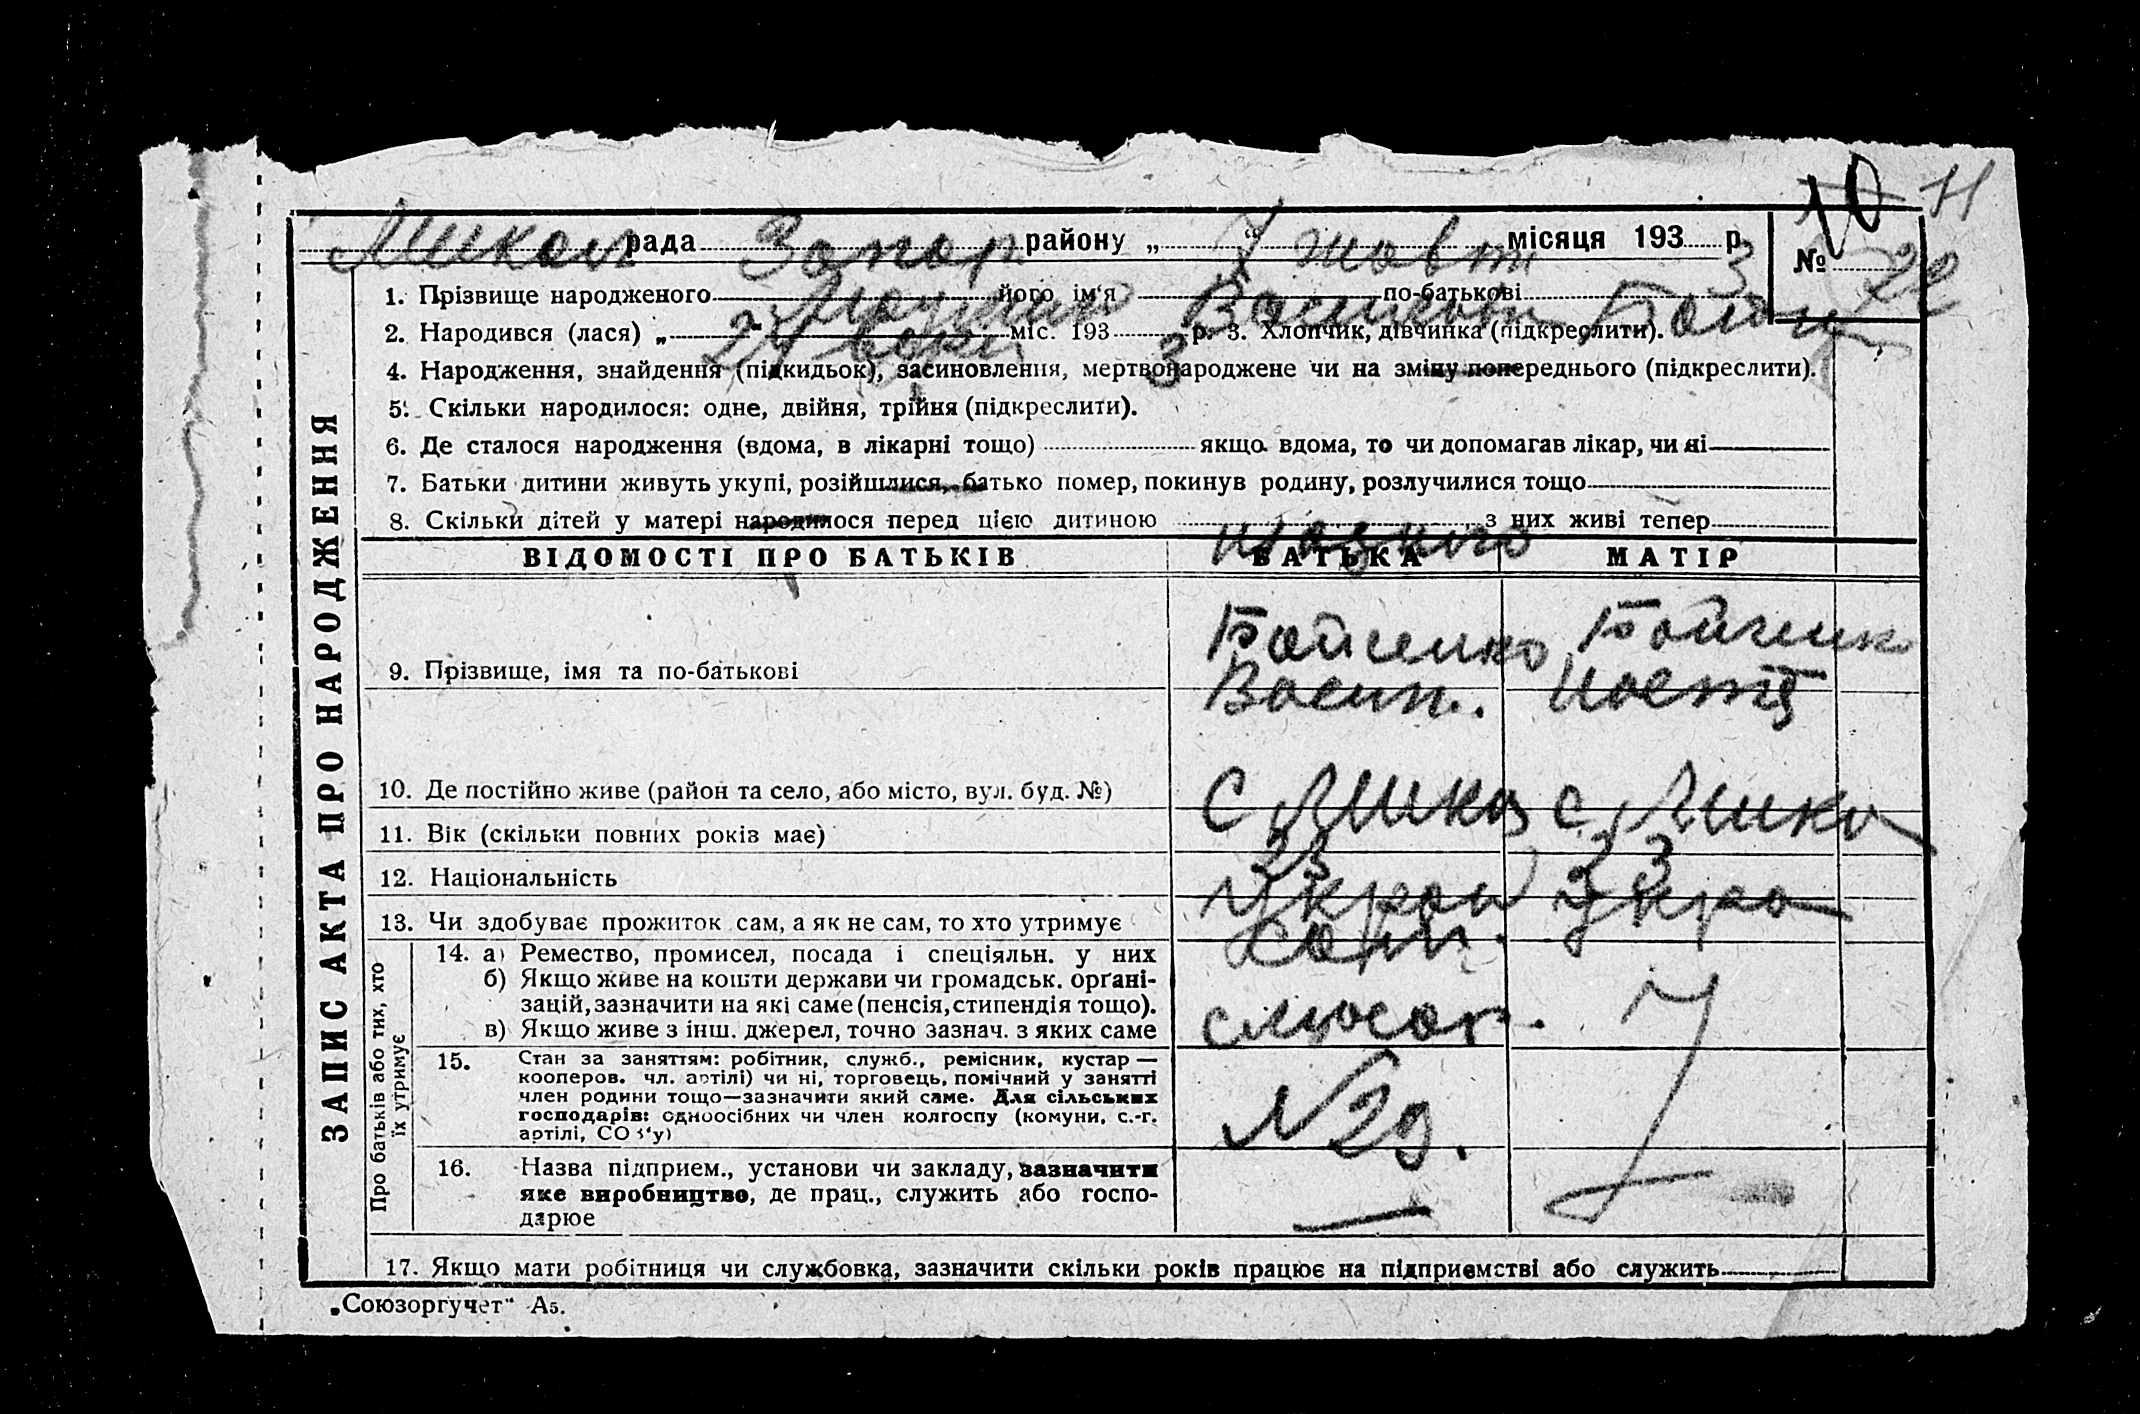 10 Н
Микол рада Запор району „ 7 “ жовт місяця 193 3 р.
№ 22
1. Прізвище народженого його ім‘я по-батькові
2. Народився (лася) „ 24 міс. 193 3 р. 3. Хлопчик, дівчинка (підкреслити).
4. Народження, знайдення (підкидьок), засиновлення, мертвонароджене чи на зміну попереднього (підкреслити).
5. Скільки народилося: одне, двійня, трійня (підкреслити).
6. Де сталося народження (вдома, в лікарні тощо) якщо вдома, то чи допомагав лікар, чи ні
7. Батьки дитини живуть укупі, розійшлися, батько помер, покинув родину, розлучилися тощо
8. Скільки дітей у матері народилося перед цією дитиною з них живі тепер
ЗАПИС АКТА ПРО НАРОДЖЕННЯ
ВІДОМОСТІ ПРО БАТЬКІВ БАТЬКА МАТІР
9. Прізвище, імя та по-батькові Бойченко Васил. Бойченк Настя
10. Де постійно живе (район та село, або місто, вул. буд. №) с Мико с Мико
11. Вік (скільки повних років має) 23 23
12. Національність Украї Укра
13. Чи здобуває прожиток сам, а як не сам, то хто утримує Сам.
Про батьків або тих, хто їх утримує
14. а) Ремество, промисел, посада і спеціяльн. у них
б) Якщо живе на кошти держави чи громадськ. орґані-
зацій, зазначити на які саме (пенсія, стипендія тощо).
в) Якщо живе з інш. джерел, точно зазнач. з яких саме слюсар.
15. Стан за заняттям: робітник, служб., ремісник, кустар —
кооперов. чл. артілі) чи ні, торговець, помічний у занятті
член родини тощо—зазначити який саме. Для сільських
господарів: одноосібних чи член колгоспу (комуни, с.-г.
артілі, СОЗ‘у) №29.
16. Назва підприєм., установи чи закладу, зазначити
яке виробництво, де прац., служить або госпо-
дарює
17. Якщо мати робітниця чи службовка, зазначити скільки років працює на підприємстві або служить
„Союзоргучет“ А5.